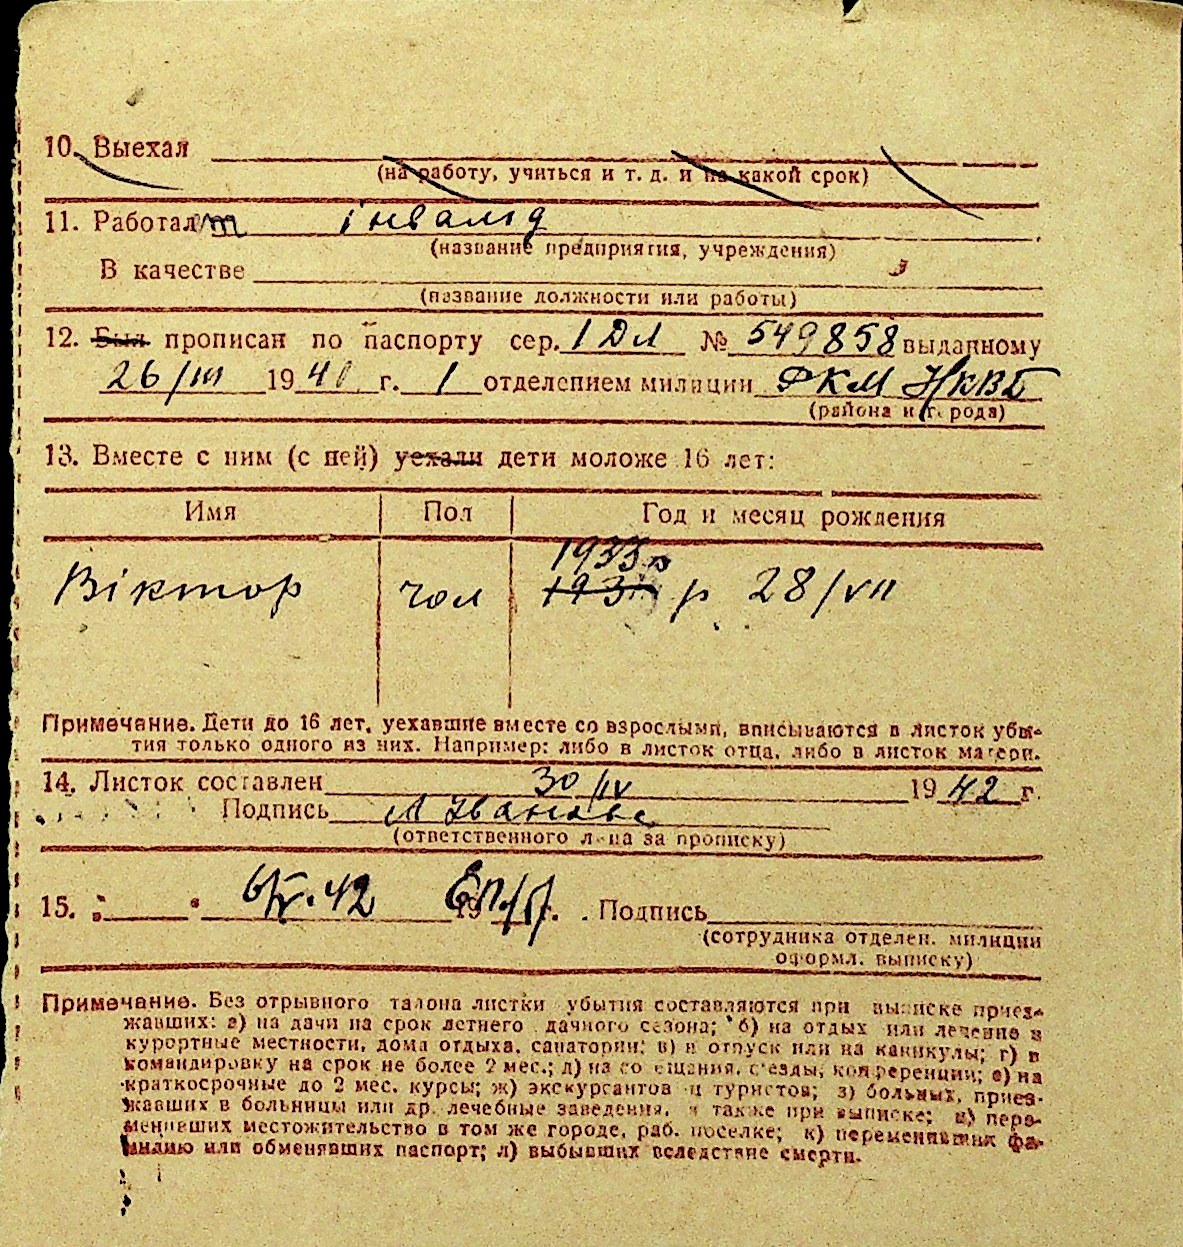 10. Выехал
(на работу, учиться и т. д. и на какой срок)
11. Работает інвалід
(название предприятия, учреждения)
В качестве
(название должности или работы)
12. Был прописан по паспорту сер. І ДЛ № 549858 выданному
26/III 1941 г. 1 отделением милиции РКМ НКВД
(района и города)
13. Вместе с ним (с ней) уехали дети моложе 16 лет:
Имя Пол Год и месяц рождения
1933 р
Віктор чол р 28/VII
Примечание. Дети до 16 лет, уехавшие вместе со взрослыми, вписываются в листок убы-
тия только одного из них. Например: либо в листок отца, либо в листок матери.
14. Листок составлен 30/IV 1942 г.
Подпись
(ответственного лица за прописку)
15. 6/V.42 19 г. Подпись
(сотрудника отделен. милиции
оформл. выписку)
Примечание. Без отрывного талона листки убытия составляются при выписке приез-
жавших: а) на дачи на срок летнего дачного сезона; б) на отдых или лечение в
курортные местности, дома отдыха, санатории; в) в отпуск или на каникулы; г) в
командировку на срок не более 2 мес.; д) на совещания, с'езды, конференции; е) на
краткосрочные до 2 мес. курсы; ж) экскурсантов и туристов; з) больных, приез-
жавших в больницы или др. лечебные заведения, а также при выписке; и) пере-
менивших местожительство в том же городе, раб. поселке; к) переменивших фа-
милию или обменявших паспорт; л) выбывших вследствие смерти.